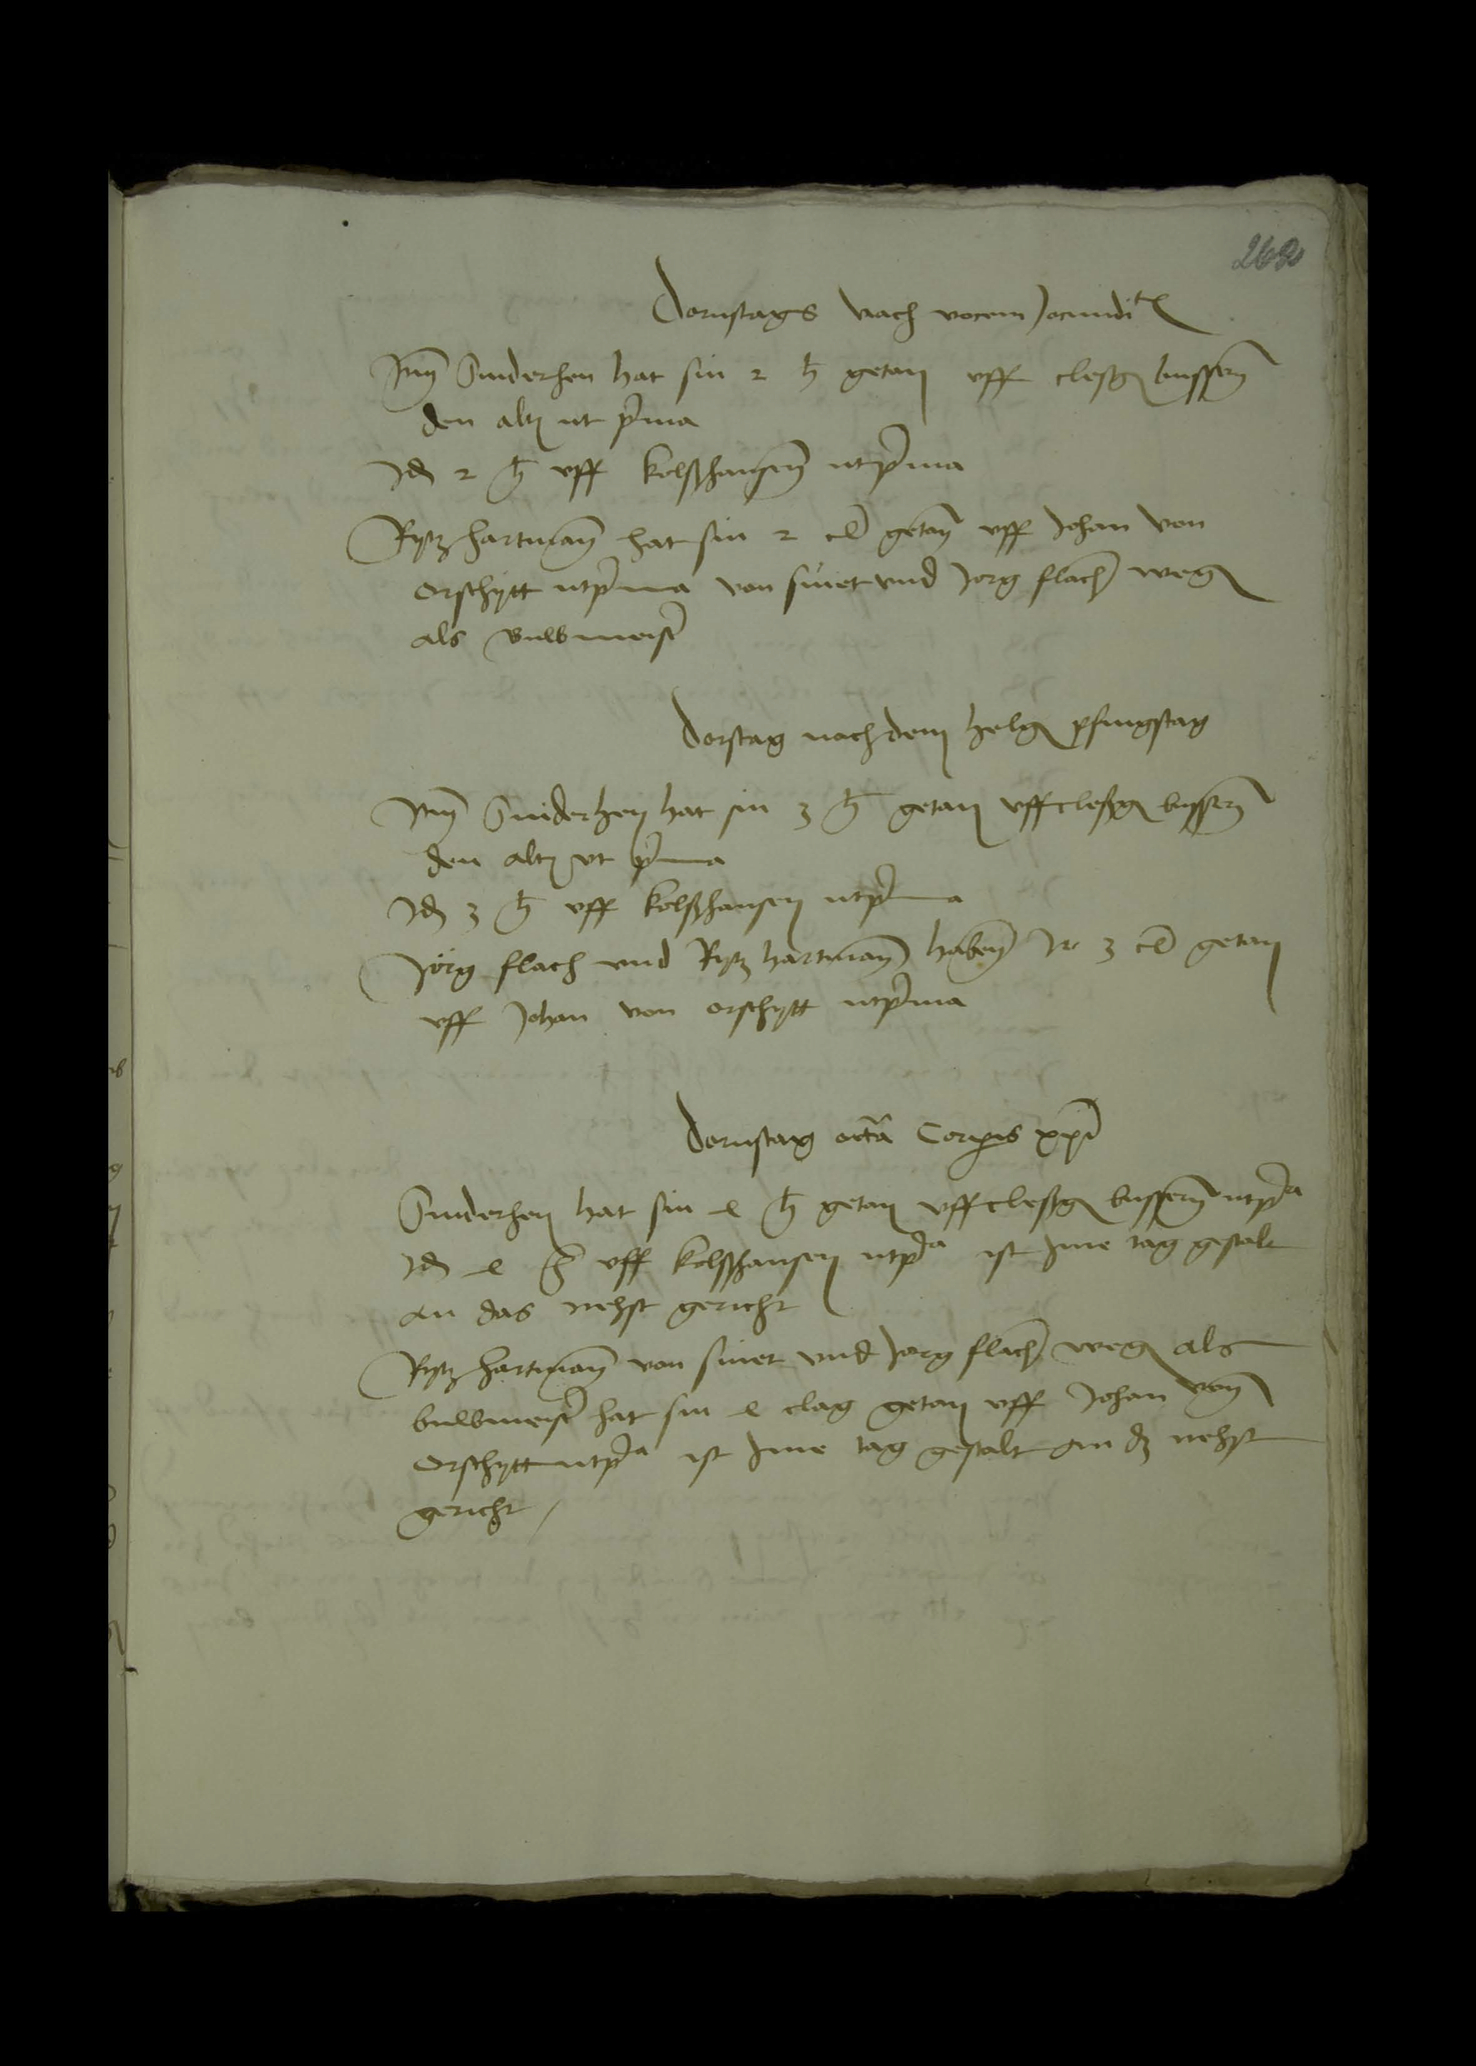 262
Dornstags nach vocem Jocundi
Jtem Sniderhen hat sin 2 h getan vff clesgen bussern
den alten ut prima
Jd 2 h vff kolsshansen ut prima
Rytz hartman hat sin 2 cl getan vff Johan von
orschytt ut prima von sinet vnd Jorg flach wegen
als buwmeister
Dorstag nach dem helgen pfingstag
Jtem Sniderhen hat sin 3 h getan vff clesgen bussern
den alten vt prima
Jd 3 h vff kolsshansen ut prima
Jorg flach vnd Rytz hartman haben Jr 3 cl getan
vff Johan von orschytt ut prima
Dornstag octa Corporis xpi
Sniderhen hat sin 4 h getan vff clesgen bussern ut pa
Jd 4 h vff kolsshansen ut pa ist Jme tag gestalt
an das nehst gericht
Rytz hartman von sinet vnd Jorg flach wegen als
buwmeister hat sin 4 clag getan vff Johan von
Orschytt ut pa ist Jme tag gestalt an dz nehst
gericht /